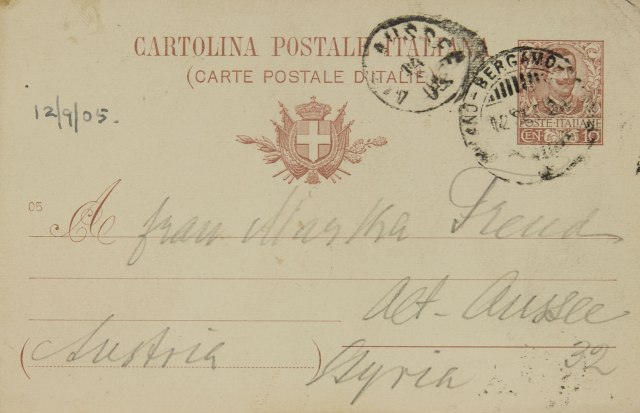 CARTOLINA POSTALE ITALIANA
(CARTE POSTALE D'ITALIE)
AUSSEE
14
05
MILANO-BERGAMO
12
POSTE·ITALIANE
CENT. 10
12/9/05.
05
A frau Martha Freud
Alt-Aussee
(Austria) Styria 32